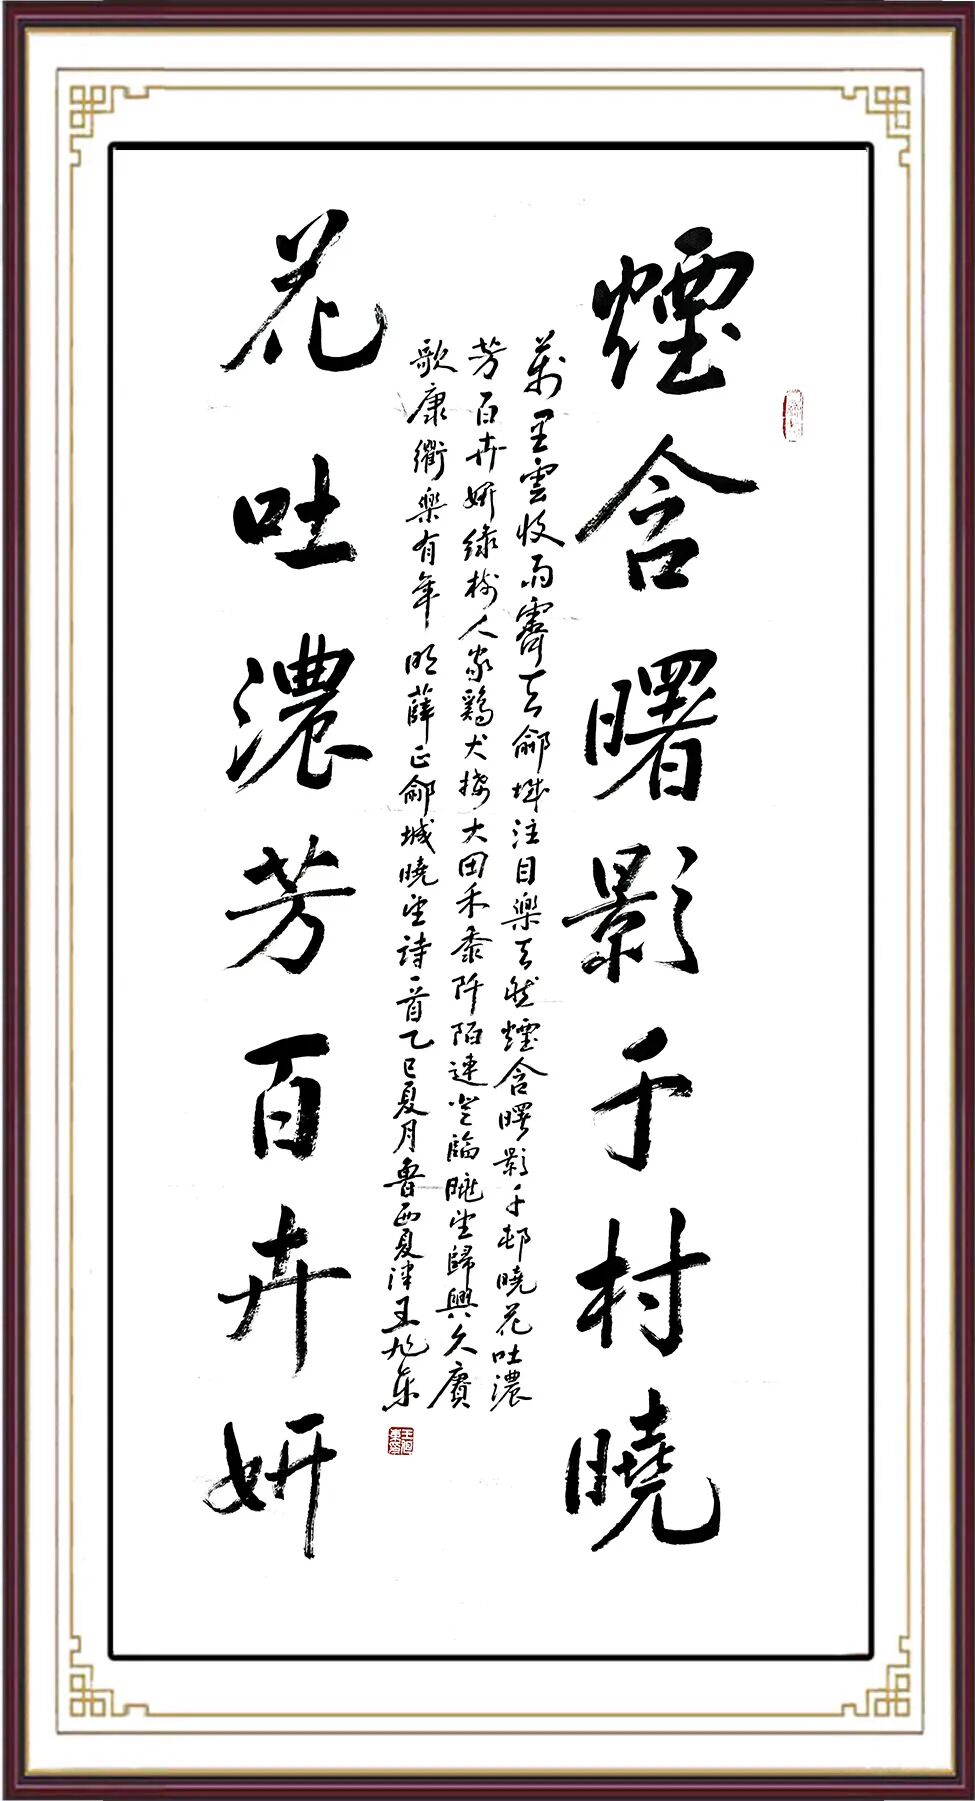 煙含曙影千村曉
萬里雲收雨霽天鄃城注目樂天然煙含曙影千邨曉花吐濃
芳百卉妍綠樹人家鷄犬擾大田禾黍阡陌連登臨眺望歸興久賡
歌康衢樂有年 明薛正鄃城曉望詩一首乙巳夏月魯西夏津王旭東
花吐濃芳百卉妍